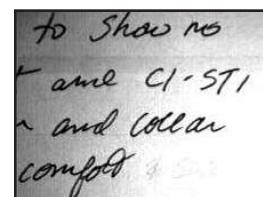 to show no
and C1-ST1
and collar
comfort